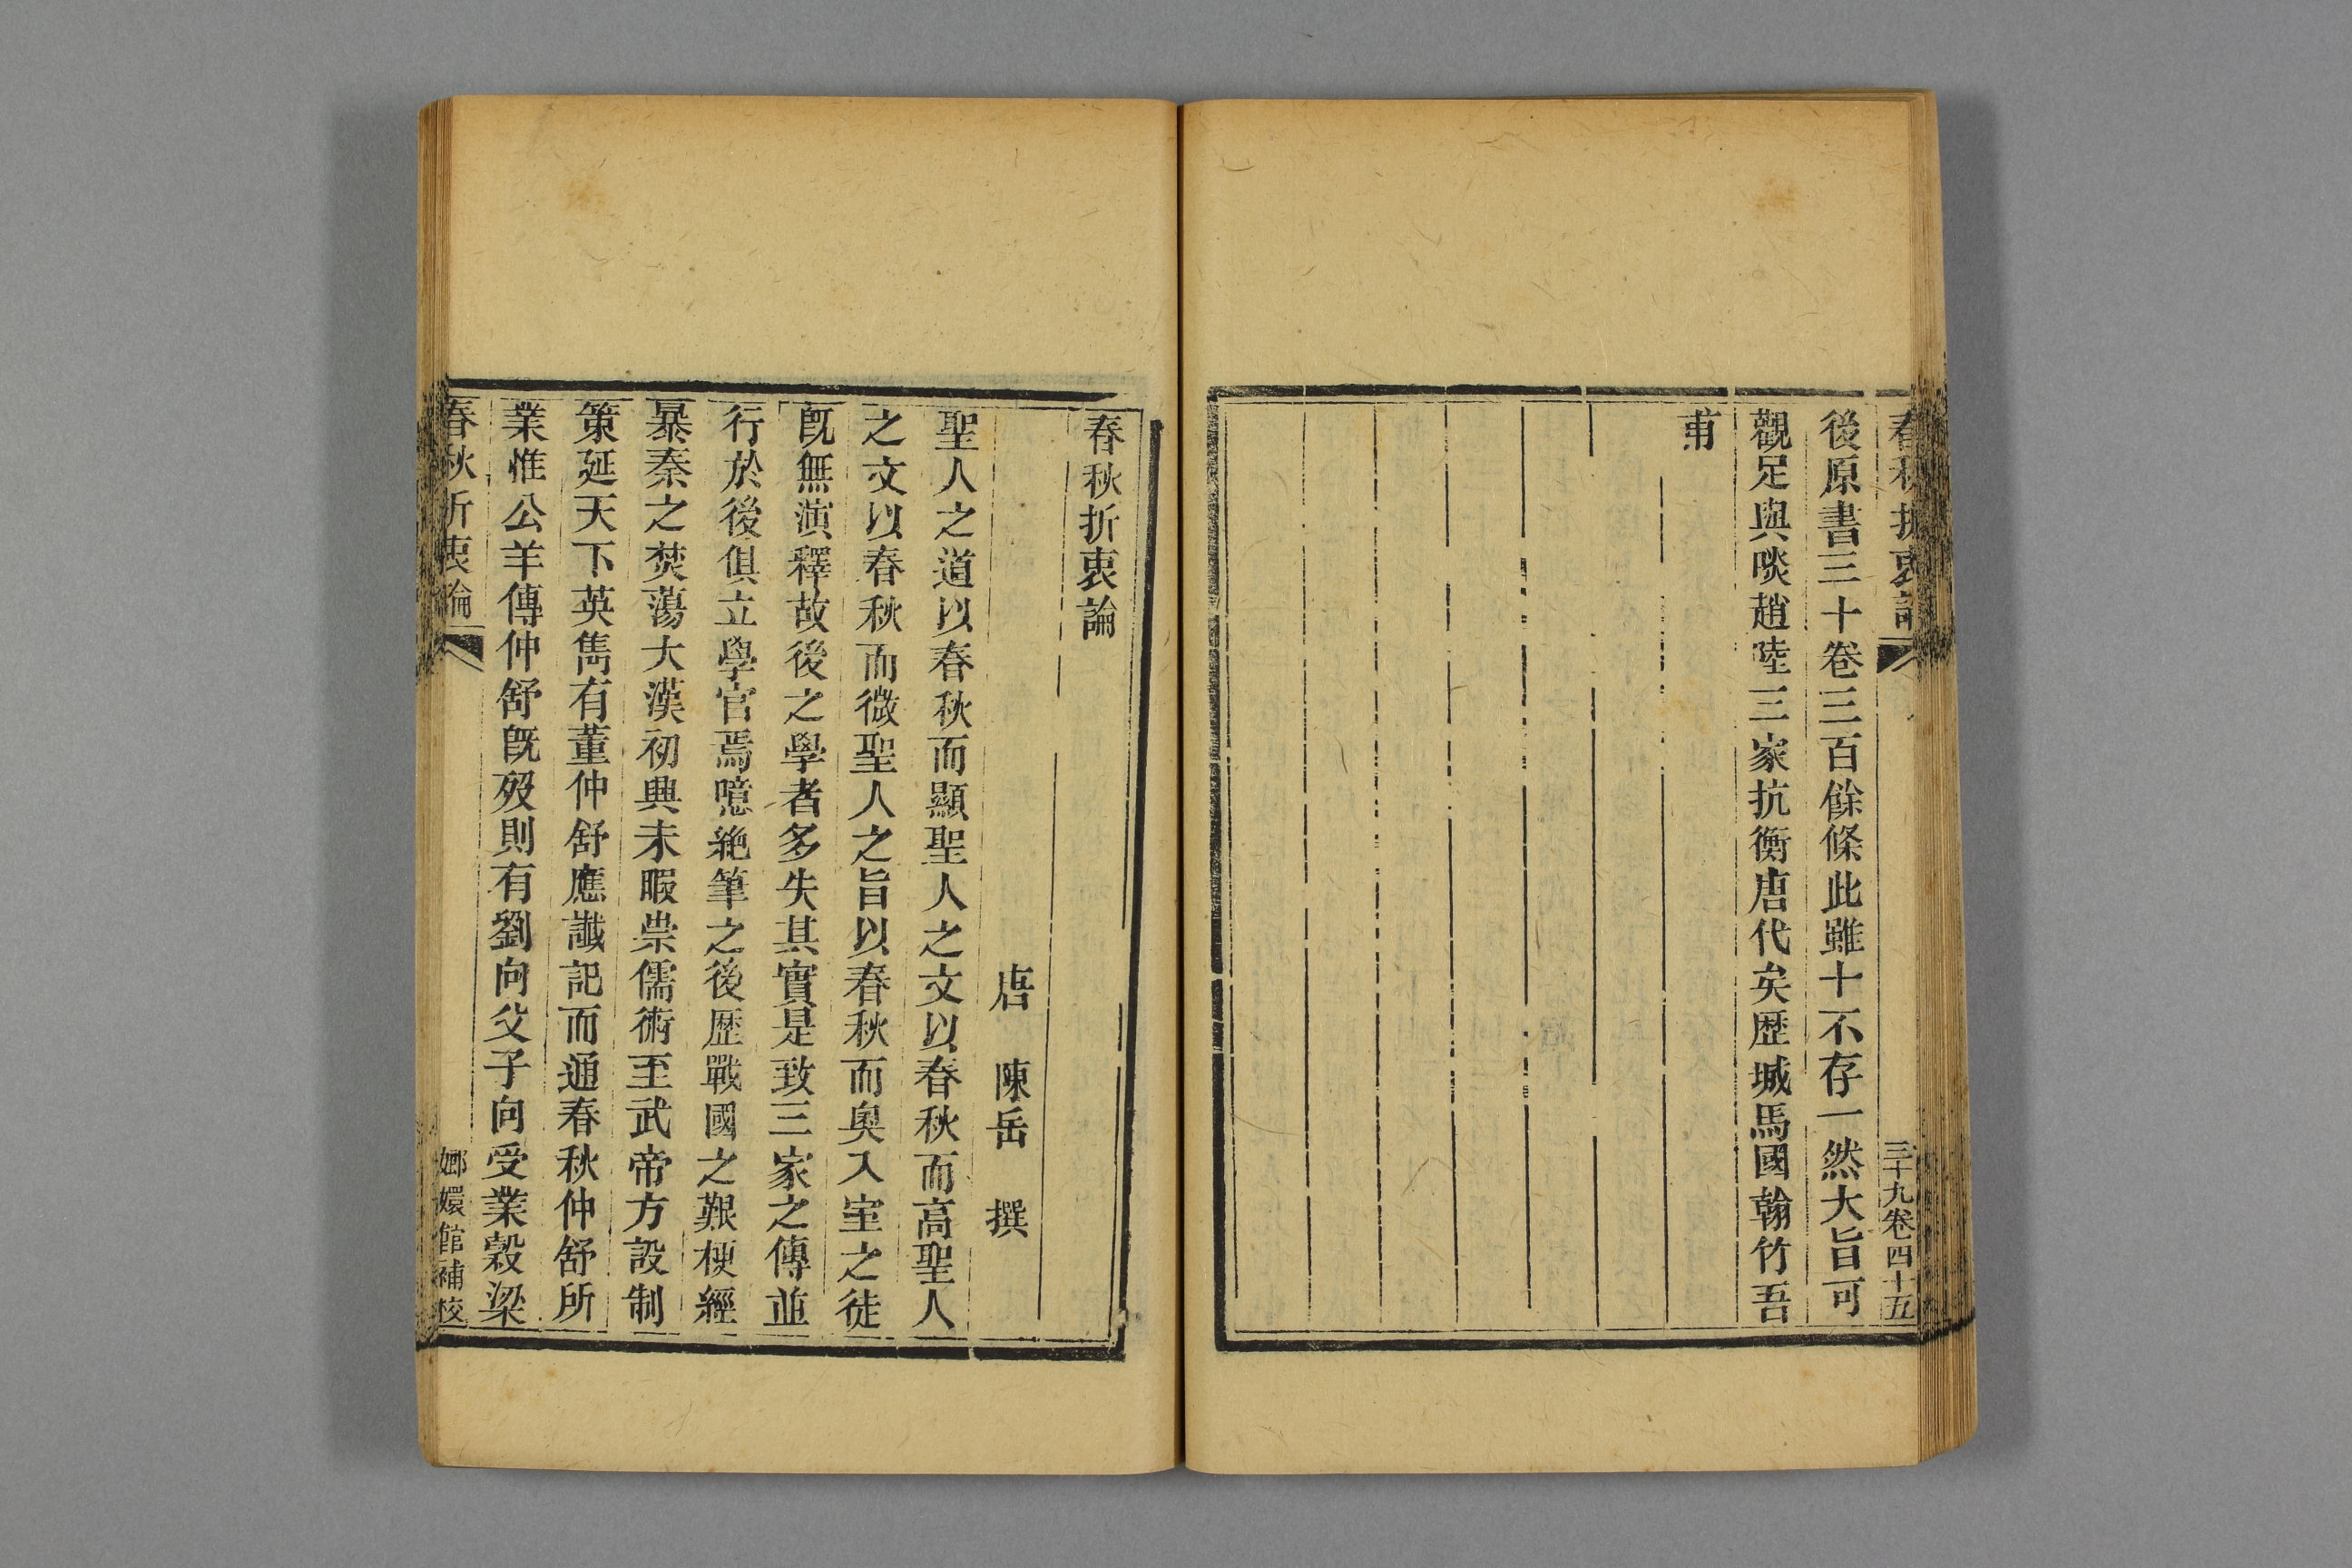 春秋折衷論
三十九卷四十五
後原書三十卷三百餘條此雖十不存一然大旨可
觀足與啖趙陸三家抗衡唐代矣歷城馬國翰竹吾
甫
春秋折衷論
唐 陳岳 撰
聖人之道以春秋而顯聖人之文以春秋而高聖人
之文以春秋而微聖人之旨以春秋而奧入室之徒
旣無演釋故後之學者多失其實是致三家之傳並
行於後俱立學官焉噫絶筆之後歷戰國之艱梗經
暴秦之焚蕩大漢初興未暇崇儒術至武帝方設制
策延天下英雋有董仲舒應讖記而通春秋仲舒所
業惟公羊傳仲舒旣歿則有劉向父子向受業穀梁
春秋折衷論
嫏嬛館補校